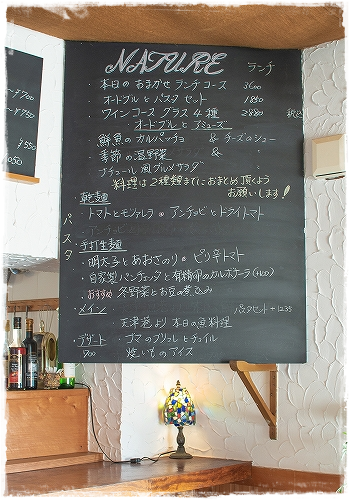 NATURE ランチ
・本日の おまかせ ランチコース 3600
オードブル と パスタ セット 1850
ワインコース グラス 4種 2880 税込
オードブル と アミューズ
・鮮魚の カルパッチョ & チーズのシュー
・季節の温野菜 &
・ナチュール風グルメサラダ
料理は2種類までにおまとめ頂くよう
お願いします!
パスタ
乾麺
・トマトとモッツァレラ • アンチョビとドライトマト
手打生麺
・明太子とあおさのり • ピリ辛トマト
・自家製パンチェッタと有精卵のカルボナーラ
・おすすめ 冬野菜とお豆の煮込み
メイン パスタセット +1235
天津港より 本日の魚料理
デザート ・ゴマのブリュレとチュイル
700 焼いものアイス
~¥700
¥550
¥550